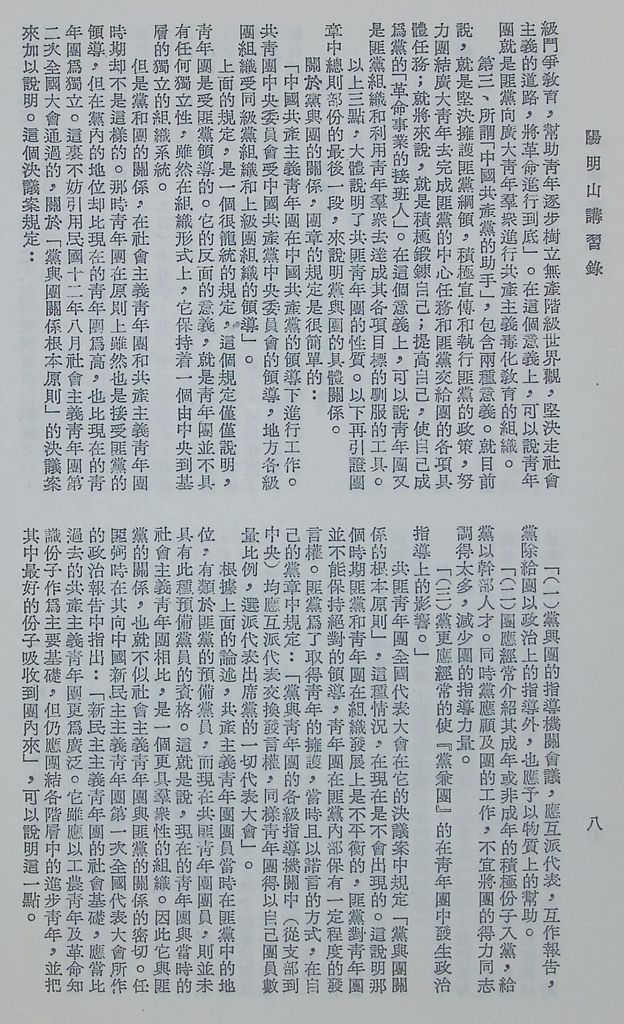 陽明山講習錄
八
級鬥爭敎育，幫助靑年逐步樹立無產階級世界觀，堅決走社會
主義的道路，將革命進行到底」。在這個意義上，可以說靑年
團就是匪黨向廣大靑年羣衆進行共產主義毒化敎育的組織。
第三、所謂「中國共產黨的助手」，包含兩種意義。就目前
說，就是堅決擁護匪黨綱領，積極宣傳和執行匪黨的政策，努
力團結廣大靑年去完成匪黨的中心任務和匪黨交給團的各項具
體任務；就將來說，就是積極鍛鍊自己；提高自己，使自己成
爲黨的「革命事業的接班人」。在這個意義上，可以說靑年團又
是匪黨組織和利用靑年羣衆去達成其各項目標的馴服的工具。
以上三點，大體說明了共匪靑年團的性質。以下再引證團
章中總則部份的最後一段，來說明黨與團的具體關係。
關於黨與團的關係，團章的規定是很簡單的：
「中國共產主義靑年團在中國共產黨的領導下進行工作。
共靑團中央委員會受中國共產黨中央委員會的領導，地方各級
團組織受同級黨組織和上級團組織的領導」。
上面的規定，是一個很籠統的規定，這個規定僅僅說明，
靑年團是受匪黨領導的。它的反面的意義，就是靑年團並不具
有任何獨立性，雖然在組織形式上，它保持着一個由中央到基
層的獨立的組織系統。
但是黨和團的關係，在社會主義靑年團和共產主義靑年團
時期却不是這樣的。那時靑年團在原則上雖然也是接受匪黨的
領導，但在黨內的地位却比現在的靑年團爲高，也比現在的靑
年團爲獨立。這裏不妨引用民國十二年八月社會主義靑年團第
二次全國大會通過的，關於「黨與團關係根本原則」的決議案
來加以說明。這個決議案規定：
「（一）黨與團的指導機關會議，應互派代表，互作報告，
黨除給團以政治上的指導外，也應予以物質上的幫助。
「（二）團應經常介紹其成年或非成年的積極份子入黨，給
黨以幹部人才。同時黨應顧及團的工作，不宜將團的得力同志
調得太多，減少團的指導力量。
「（三）黨更應經常的使『黨乘團』的在靑年團中發生政治
指導上的影響。」
共匪靑年團全國代表大會在它的決議案中規定「黨與團關
係的根本原則」，這種情況，在現在是不會出現的。這說明那
個時期匪黨和靑年團在組織發展上是不平衡的，匪黨對靑年團
並不能保持絕對的領導，靑年團在匪黨內部保有一定程度的發
言權。匪黨爲了取得靑年的擁護，當時且以諾言的方式，在自
己的黨章中規定：「黨與靑年團的各級指導機關中（從支部到
中央）均應互派代表交換發言權，同樣靑年團得以自己團員數
量比例，選派代表出席黨的一切代表大會」。
根據上面的論述，共產主義靑年團團員當時在匪黨中的地
位，有類於匪黨的預備黨員，而現在共匪靑年團團員，則並未
具有此種預備黨員的資格。這就是說，現在的靑年團與當時的
社會主義靑年團相比，是一個更具羣衆性的組織。因此它與匪
黨的關係，也就不似社會主義靑年團與匪黨的關係的密切。任
匪弼時在其向中國新民主主義靑年團第一次全國代表大會所作
的政治報告中指出：「新民主主義靑年團的社會基礎，應當比
過去的共產主義靑年團更爲廣泛。它雖應以工農靑年及革命知
識份子作爲主要基礎，但仍應團結各階層中的進步靑年，並把
其中最好的份子吸收到團內來」，可以說明這一點。